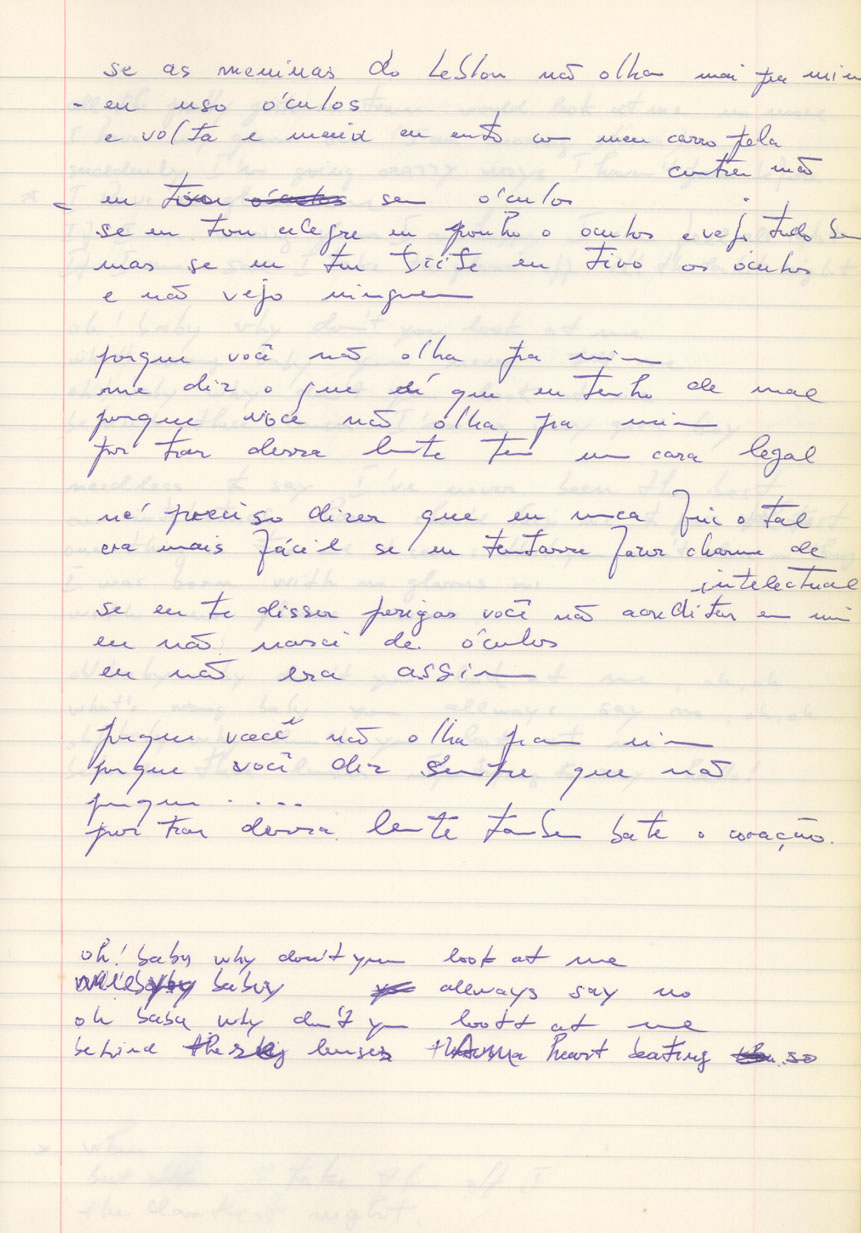 se as meninas do Leblon não olha mai pra mim
- eu uso óculos
e volta e meia eu ento co meu carro pela
contra mão
eu sem óculos
se eu tou alegre eu ponho o óculos e vejo tudo bem
mas se eu tou triste eu tiro os óculos
e não vejo ninguem
porque você não olha pra mim
me diz o que é que eu tenho de mal
porque voce não olha pra mim
por tras dessa lente tem um cara legal
né preciso dizer que eu nunca fui o tal
era mais fácil se eu tentasse fazer charme de
intelectual
se eu te disser periga você não acreditar em mim
eu não nasci de óculos
eu não era assim
porque você não olha pra mim
porque você diz sempre que não
porque .....
por tras dessa lente tambem bate o coração.
oh! baby why don't you look at me
baby allways say no
oh baby why don't you look at me
behind lenses heart beating so